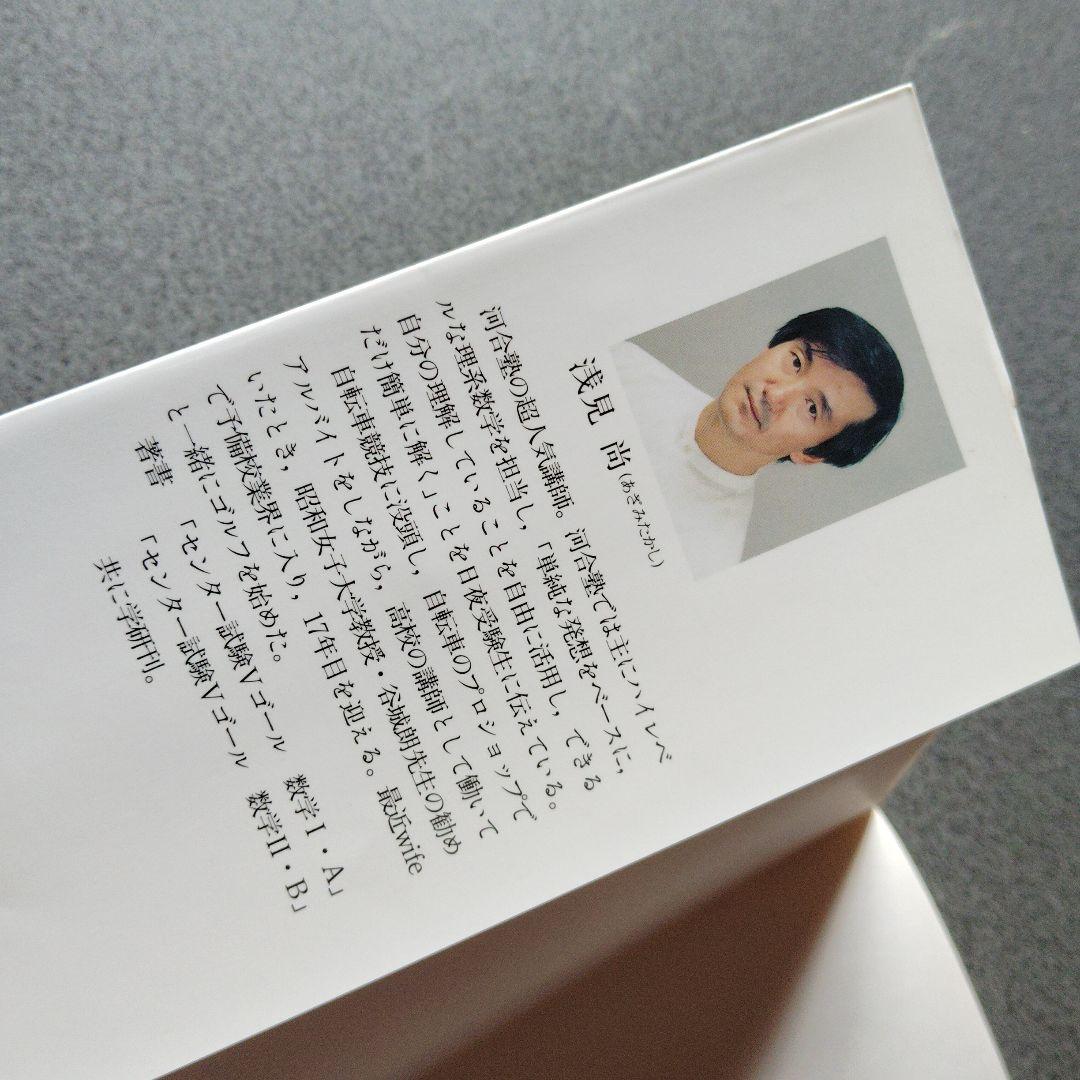 浅見 尚(あさみたかし)
河合塾の超人気講師。河合塾では主にハイレベ
ルな理系数学を担当し,「単純な発想をベースに,
自分の理解していることを自由に活用し,できる
だけ簡単に解く」ことを日夜受験生に伝えている。
自転車競技に没頭し,自転車のプロショップで
アルバイトをしながら,高校の講師として働いて
いたとき,昭和女子大学教授・谷城朗先生の勧め
で予備校業界に入り,17年目を迎える。最近wife
と一緒にゴルフを始めた。
著書 「センター試験Vゴール 数学I・A」
「センター試験Vゴール 数学II・B」
共に学研刊。